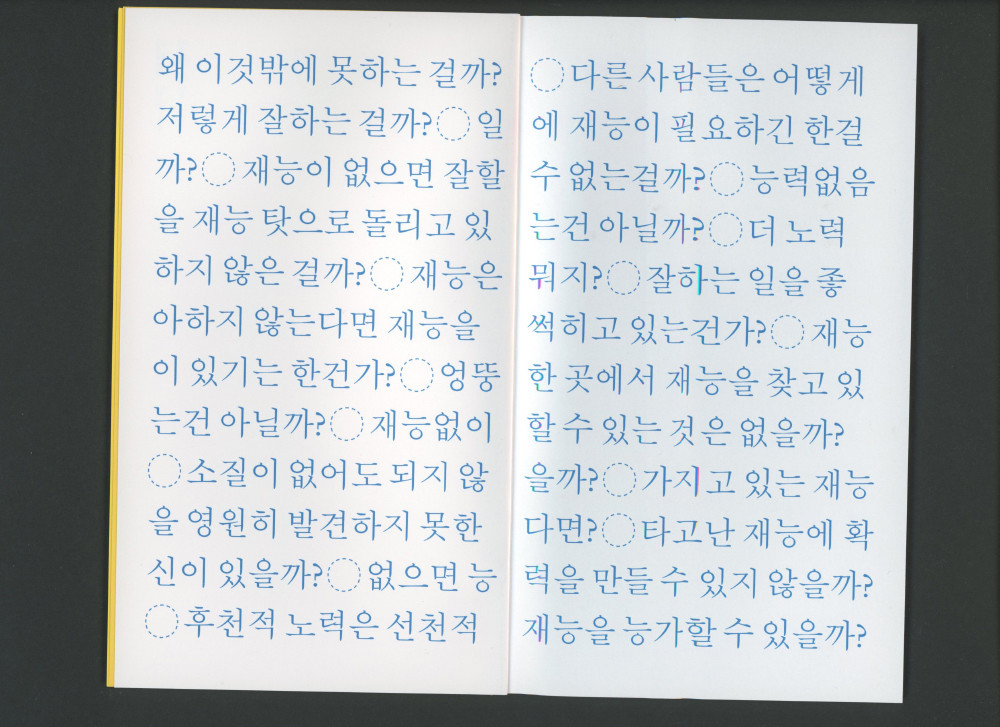 왜 이것밖에 못하는 걸까? ◌ 다른 사람들은 어떻게
저렇게 잘하는 걸까? ◌ 일에 재능이 필요하긴 한걸
까? ◌ 재능이 없으면 잘할 수 없는걸까? ◌ 능력없음
을 재능 탓으로 돌리고 있는건 아닐까? ◌ 더 노력
하지 않은 걸까? ◌ 재능은 뭐지? ◌ 잘하는 일을 좋
아하지 않는다면 재능을 썩히고 있는건가? ◌ 재능
이 있기는 한건가? ◌ 엉뚱한 곳에서 재능을 찾고 있
는건 아닐까? ◌ 재능없이 할 수 있는 것은 없을까?
◌ 소질이 없어도 되지 않을까? ◌ 가지고 있는 재능
을 영원히 발견하지 못한다면? ◌ 타고난 재능에 확
신이 있을까? ◌ 없으면 능력을 만들 수 있지 않을까?
◌ 후천적 노력은 선천적 재능을 능가할 수 있을까?